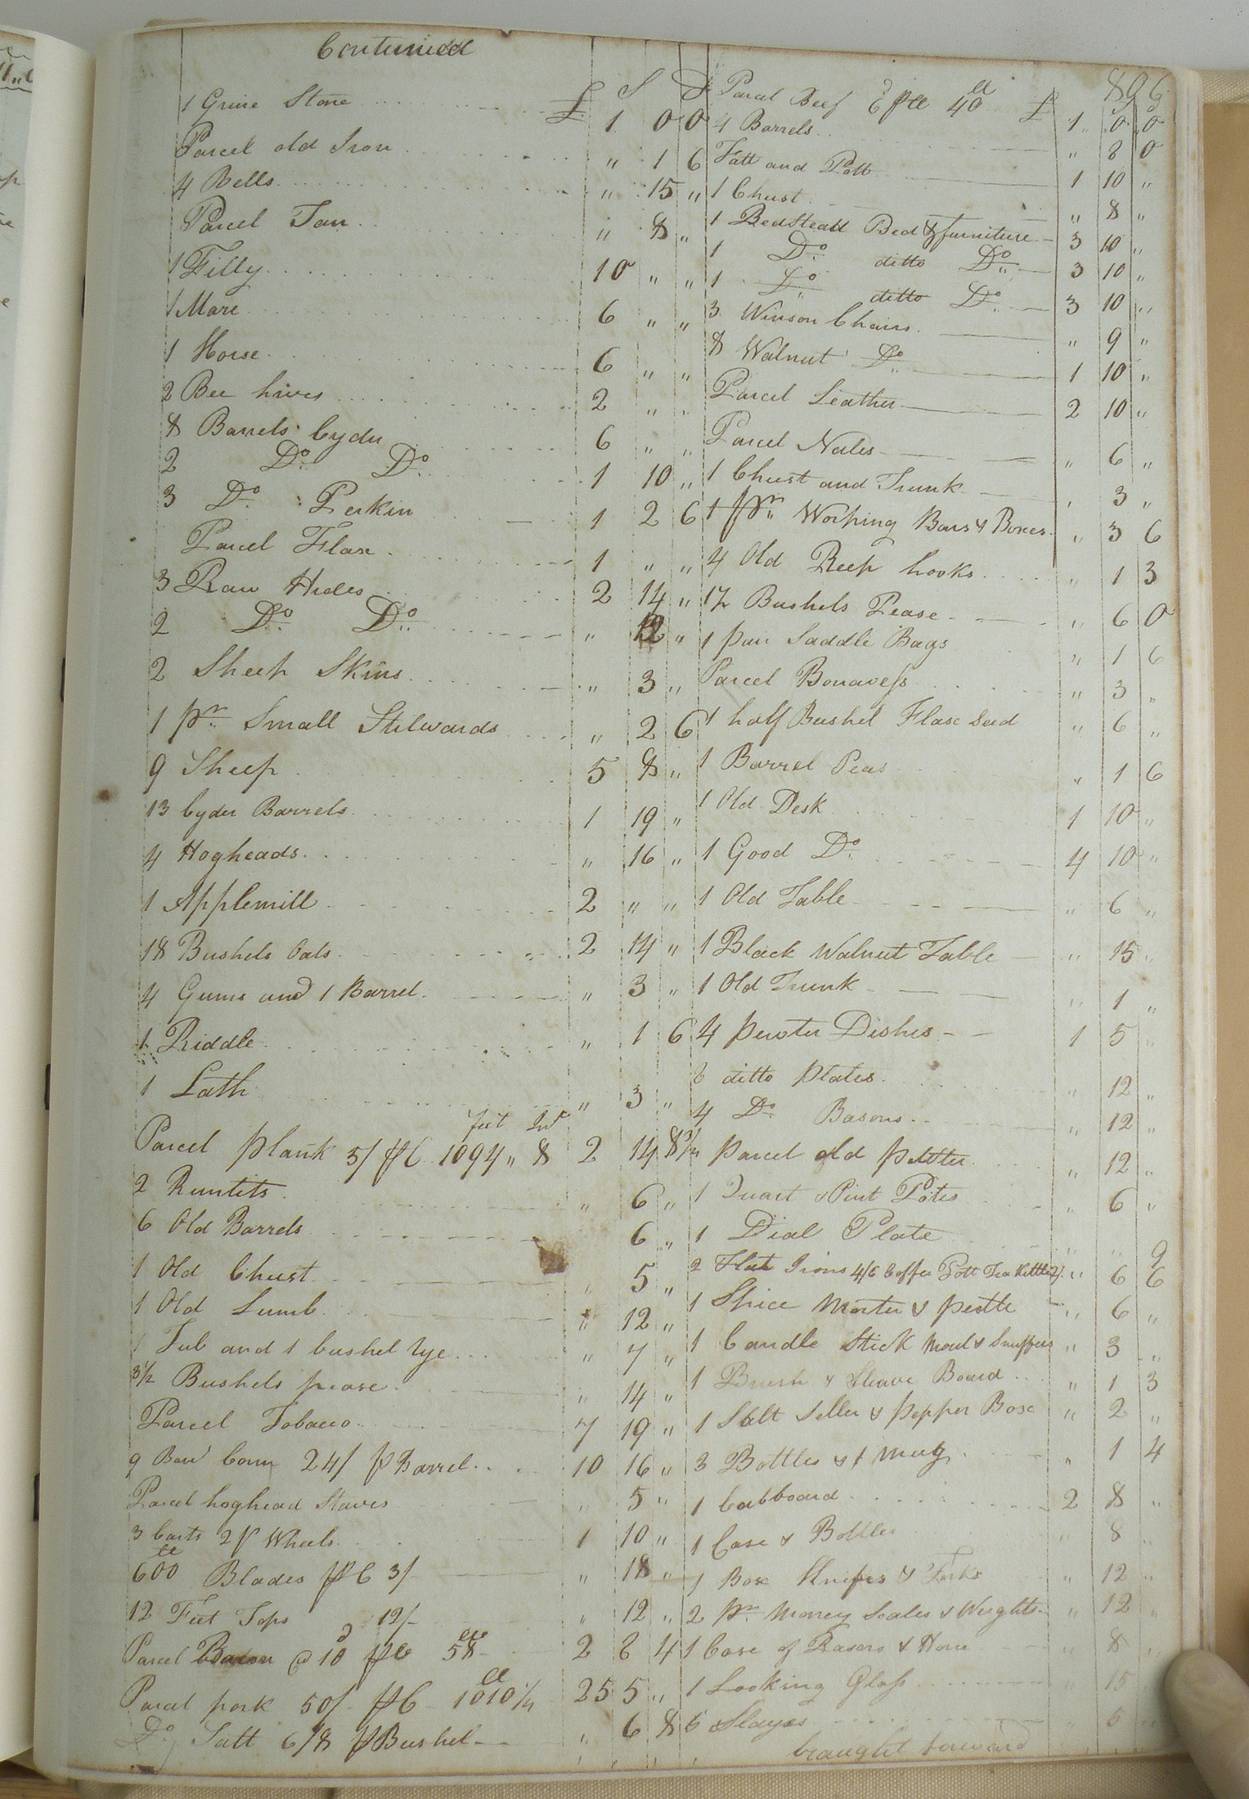 Continued
896
£ S D
1 Grine Stone £ 1. 0 0
Parcel old Iron " 1 6
4 Bells " 15 "
Parcel Tan " 8 "
1 Filly 10 " "
1 Mare 6 " "
1 Horse 6 " "
2 Bee hives 2 " "
8 Barrels Cyder 6 " "
2 Do. Do. 1 10 "
3 Do. Perkin 1 2 6
Parcel Flax 1 " "
3 Raw Hides 2 14 "
2 Do. Do. " 12 "
2 Sheep Skins " 3 "
1 pr. Small Stilwards " 2 6
9 Sheep 5 8 "
13 Cyder Barrels 1 19 "
4 Hogheads " 16 "
1 Applemill 2 " "
18 Bushels Oats 2 14 "
4 Gums and 1 Barrel " 3 "
1 Riddle " 1 6
1 Lath " 3 "
feet In
Parcel plank 5/ pC 1094 " 8 2 14 8 3/4
2 Runlits " 6 "
6 Old Barrels 6 "
1 Old Chust " 5 "
1 Old Lumb " 12 "
1 Tub and 1 bushel rye " 7 "
3 1/2 Bushels pease " 14 "
Parcel Tobacco 7 19 "
9 Barl Corn 24/ p Barrel 10 16 "
Parcel hoghead Staves " 5 "
3 Carts 2 pr Wheels 1 10 "
600 Blades p C 3/ " 18 "
12 Feet Tops 12/- " 12 "
Parcel Bacon @ 10d p lb 58 2 8 4
Parcel pork 50/ p C 1010 1/4 25 5 "
Do. Salt 6/8 p Bushel " 6 8
Parcel Beef 6d p lb 40 £ 1 " 0 0
4 Barrels " 8 0
Fatt and Pott 1 10 "
1 Chust " 8 "
1 Bedsteall Bed & furniture 3 10 "
1 Do. ditto Do. 3 10 "
1 Do. ditto Do. 3 10 "
3 Winson Chairs " 9 "
8 Walnut Do. 1 10 "
Parcel Leather 2 10 "
Parcel Nales " 6 "
1 Chust and Trunk " 3 "
1 pr. Worping Bars & Boxes " 3 6
4 Old Reep hooks " 1 3
1 1/2 Bushels Pease " 6 0
1 pair Saddle Bags " 1 6
Parcel Bonavess " 3 "
1 half Bushel Flax Seed " 6 "
1 Barrel Peas " 1 6
1 Old Desk 1 10 "
1 Good Do. 4 10 "
1 Old Table " 6 "
1 Black Walnut Table " 15 "
1 Old Trunk " 1 "
4 pewter Dishes 1 5 "
6 ditto plates " 12 "
4 Do. Basons " 12 "
parcel old pewter " 12 "
1 Quart & Pint Potes " 6 "
1 Dial Plate " " 9
2 Flat Irons 4/6 Coffee Pott Tea Kittle 2/ " 6 6
1 Spice Morter & pestle " 6 "
1 Candle Stick Moul & Snuffers " 3 "
1 Brush & Sleave Board " 1 3
1 Salt Seller & pepper Box " 2 "
3 Bottles & 1 mug " 1 4
1 Cubboard 2 8 "
1 Case & Bottles " 8 "
1 Box Knifes & Forks " 12 "
2 pr. Money Scales & Weights " 12 "
1 Case of Rasors & Hone " 8 "
1 Looking Glass " 15 "
6 Slayes " 6 "
braught forward